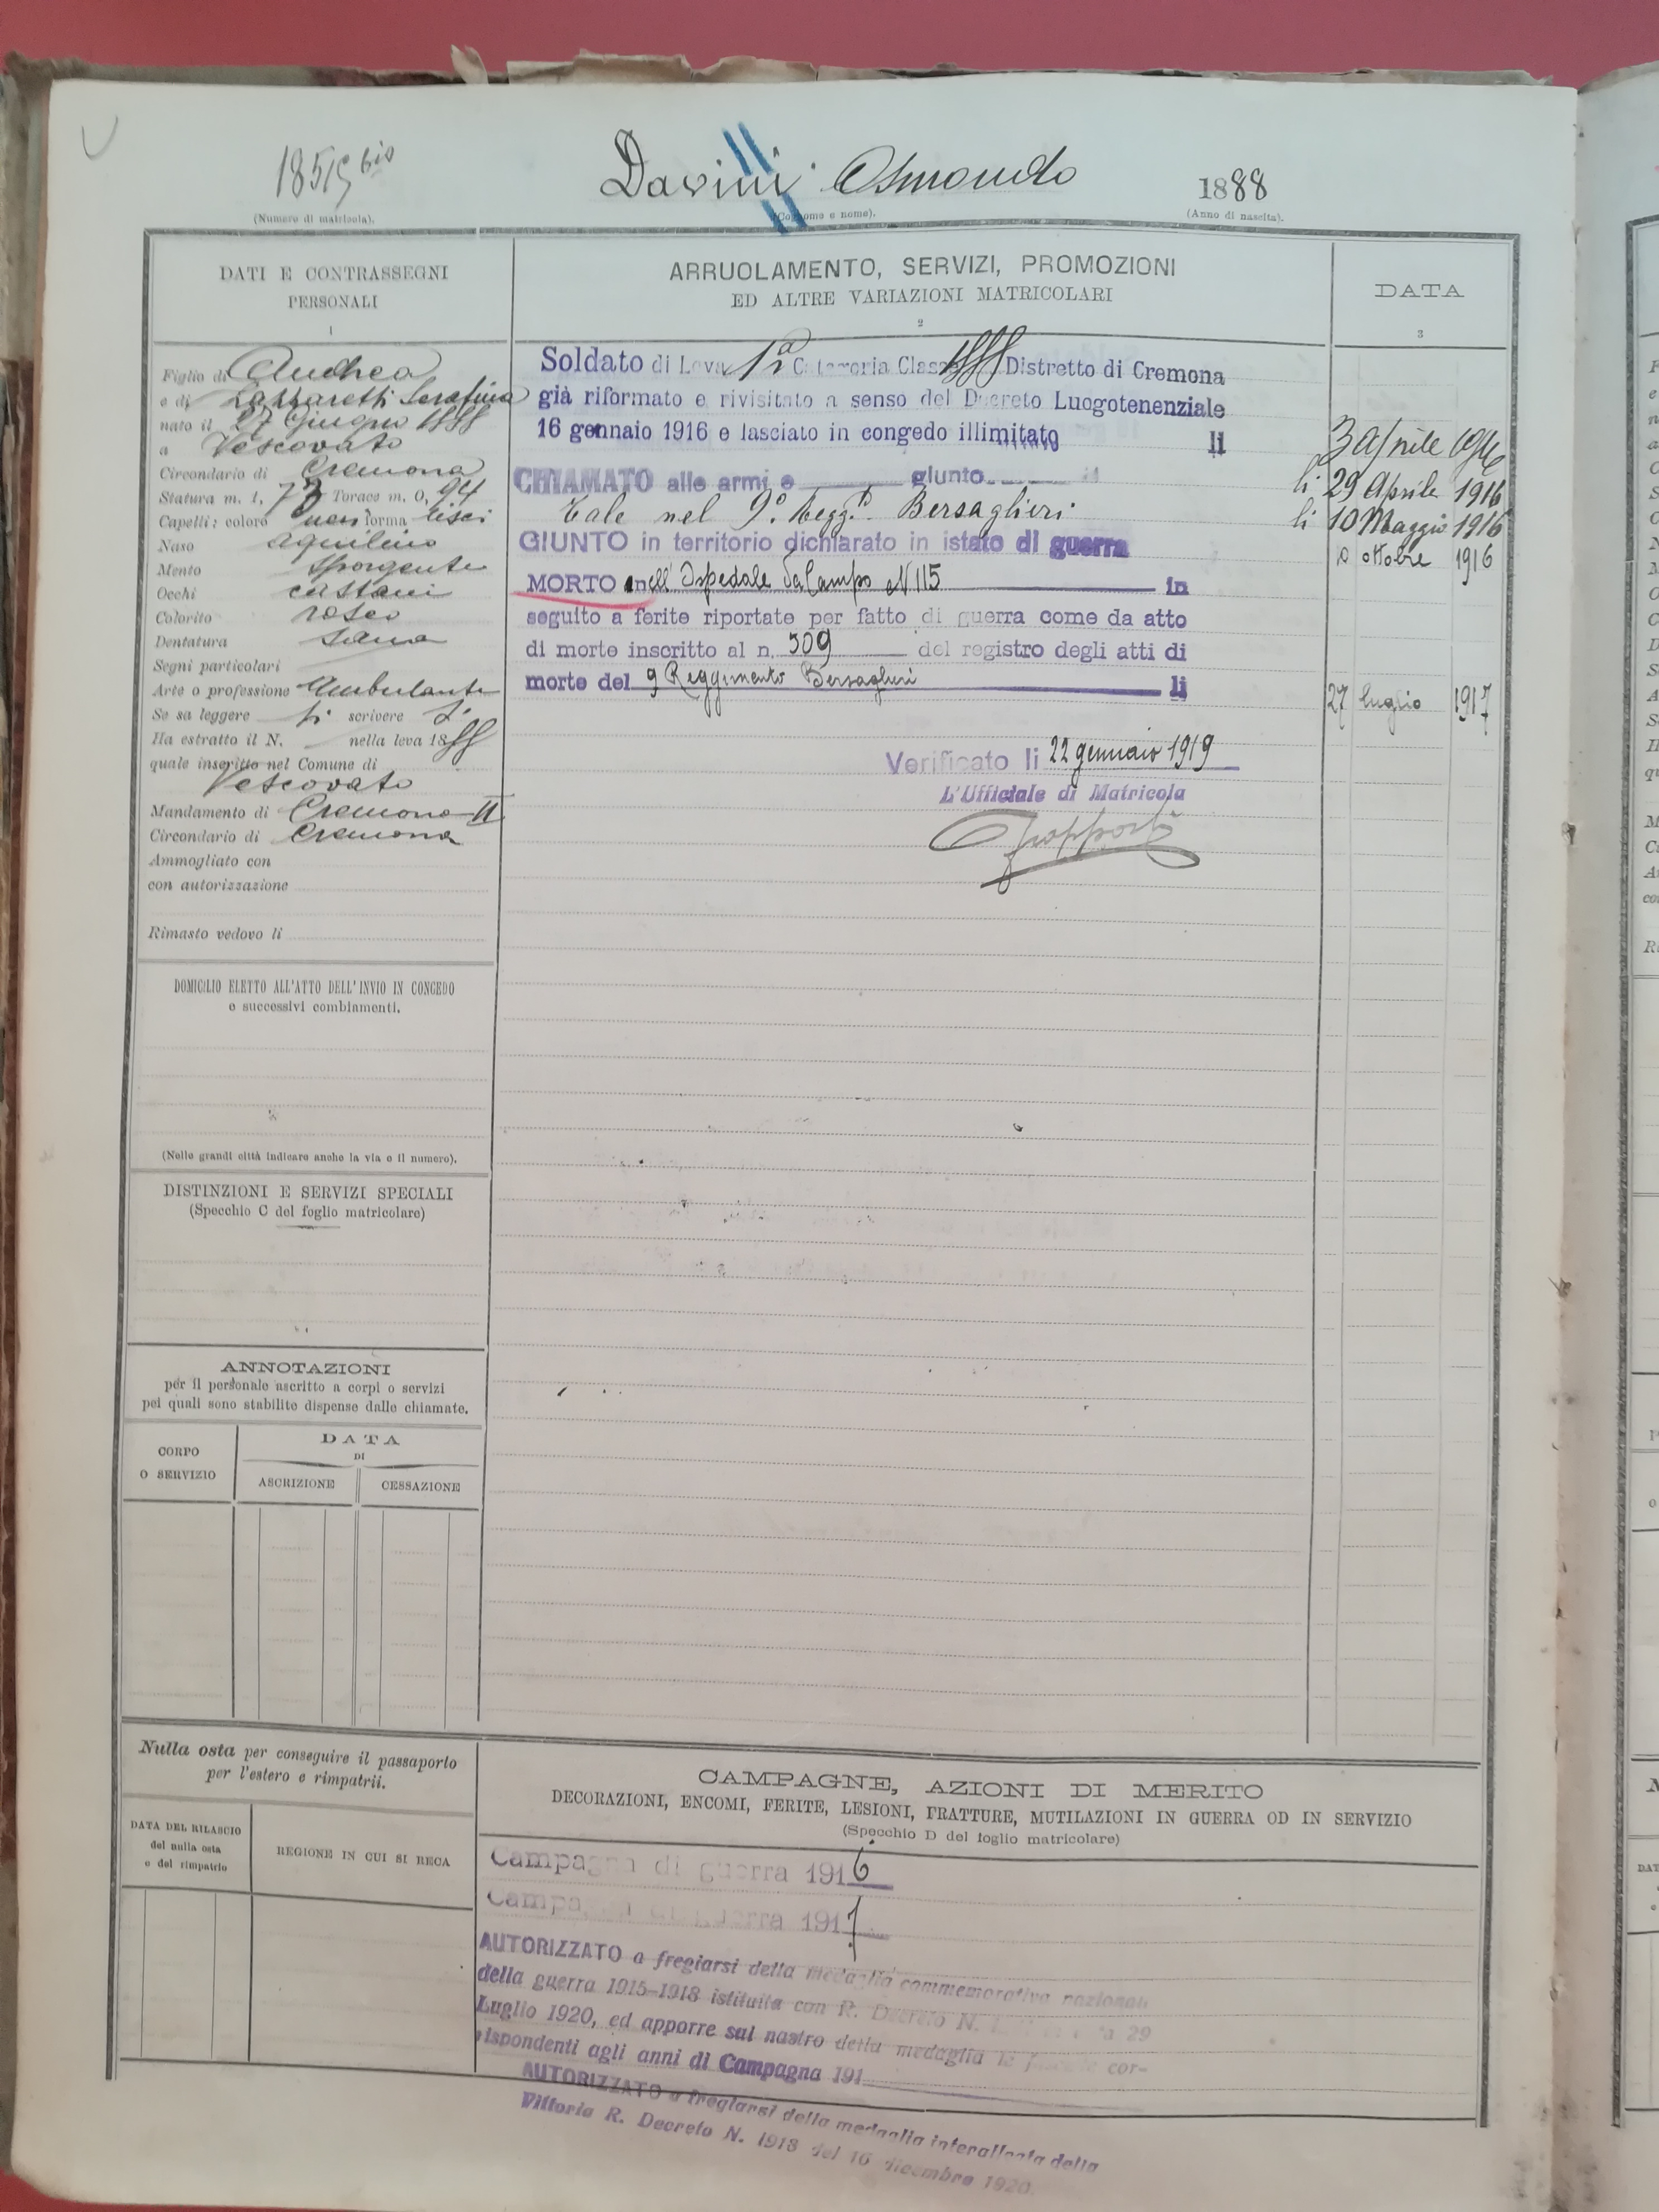 18515 bis
Davini Osmondo 1888
(Numero di matricola). (Cognome e nome). (Anno di nascita).
DATI E CONTRASSEGNI
PERSONALI
1
Figlio di Andrea
e di Lazzaretti Serafina
nato il 27 Giugno 1888
a Vescovato
Circondario di Cremona
Statura m. 1, 73 Torace m. 0, 94
Capelli: colore neri forma lisci
Naso aquilino
Mento sporgente
Occhi castani
Colorito roseo
Dentatura sana
Segni particolari
Arte o professione Ambulante
Se sa leggere si scrivere si
Ha estratto il N. nella leva 1888
quale inscritto nel Comune di
Vescovato
Mandamento di Cremona II
Circondario di Cremona
Ammogliato con
con autorizzazione
Rimasto vedovo li
DOMICILIO ELETTO ALL'ATTO DELL'INVIO IN CONGEDO
e successivi combiamenti.
(Nelle grandi città indicare anche la via e il numero).
DISTINZIONI E SERVIZI SPECIALI
(Specchio C del foglio matricolare)
ANNOTAZIONI
per il personale ascritto a corpi o servizi
pei quali sono stabilite dispense dalle chiamate.
CORPO
O SERVIZIO
DATA
DI
ASCRIZIONE CESSAZIONE
ARRUOLAMENTO, SERVIZI, PROMOZIONI
ED ALTRE VARIAZIONI MATRICOLARI
2
DATA
3
Soldato di Leva 1ª Categoria Classe 1888 Distretto di Cremona
già riformato e rivisitato a senso del Decreto Luogotenenziale
16 gennaio 1916 e lasciato in congedo illimitato li 3 Aprile 1916
CHIAMATO alle armi e giunto li 29 Aprile 1916
Tale nel 9º Regg.to Bersaglieri li 10 Maggio 1916
GIUNTO in territorio dichiarato in istato di guerra ottobre 1916
MORTO nell'Ospedale Da Campo N 115 in
seguito a ferite riportate per fatto di guerra come da atto
di morte inscritto al n. 509 del registro degli atti di
morte del 9 Reggimento Bersaglieri li 27 luglio 1917
Verificato li 22 gennaio 1919
L'Ufficiale di Matricola
Nulla osta per conseguire il passaporto
per l'estero e rimpatrii.
DATA DEL RILASCIO
del nulla osta
o del rimpatrio
REGIONE IN CUI SI RECA
CAMPAGNE, AZIONI DI MERITO
DECORAZIONI, ENCOMI, FERITE, LESIONI, FRATTURE, MUTILAZIONI IN GUERRA OD IN SERVIZIO
(Specchio D del foglio matricolare)
Campagna di guerra 1916
Campagna di guerra 1917
AUTORIZZATO a fregiarsi della medaglia commemorativa nazionale
della guerra 1915-1918 istituita con R. Decreto N. 29
Luglio 1920, ed apporre sul nastro della medaglia le cor-
rispondenti agli anni di Campagna 191
AUTORIZZATO a fregiarsi della medaglia interalleata della
Vittoria R. Decreto N. 1918 del 16 dicembre 1920.